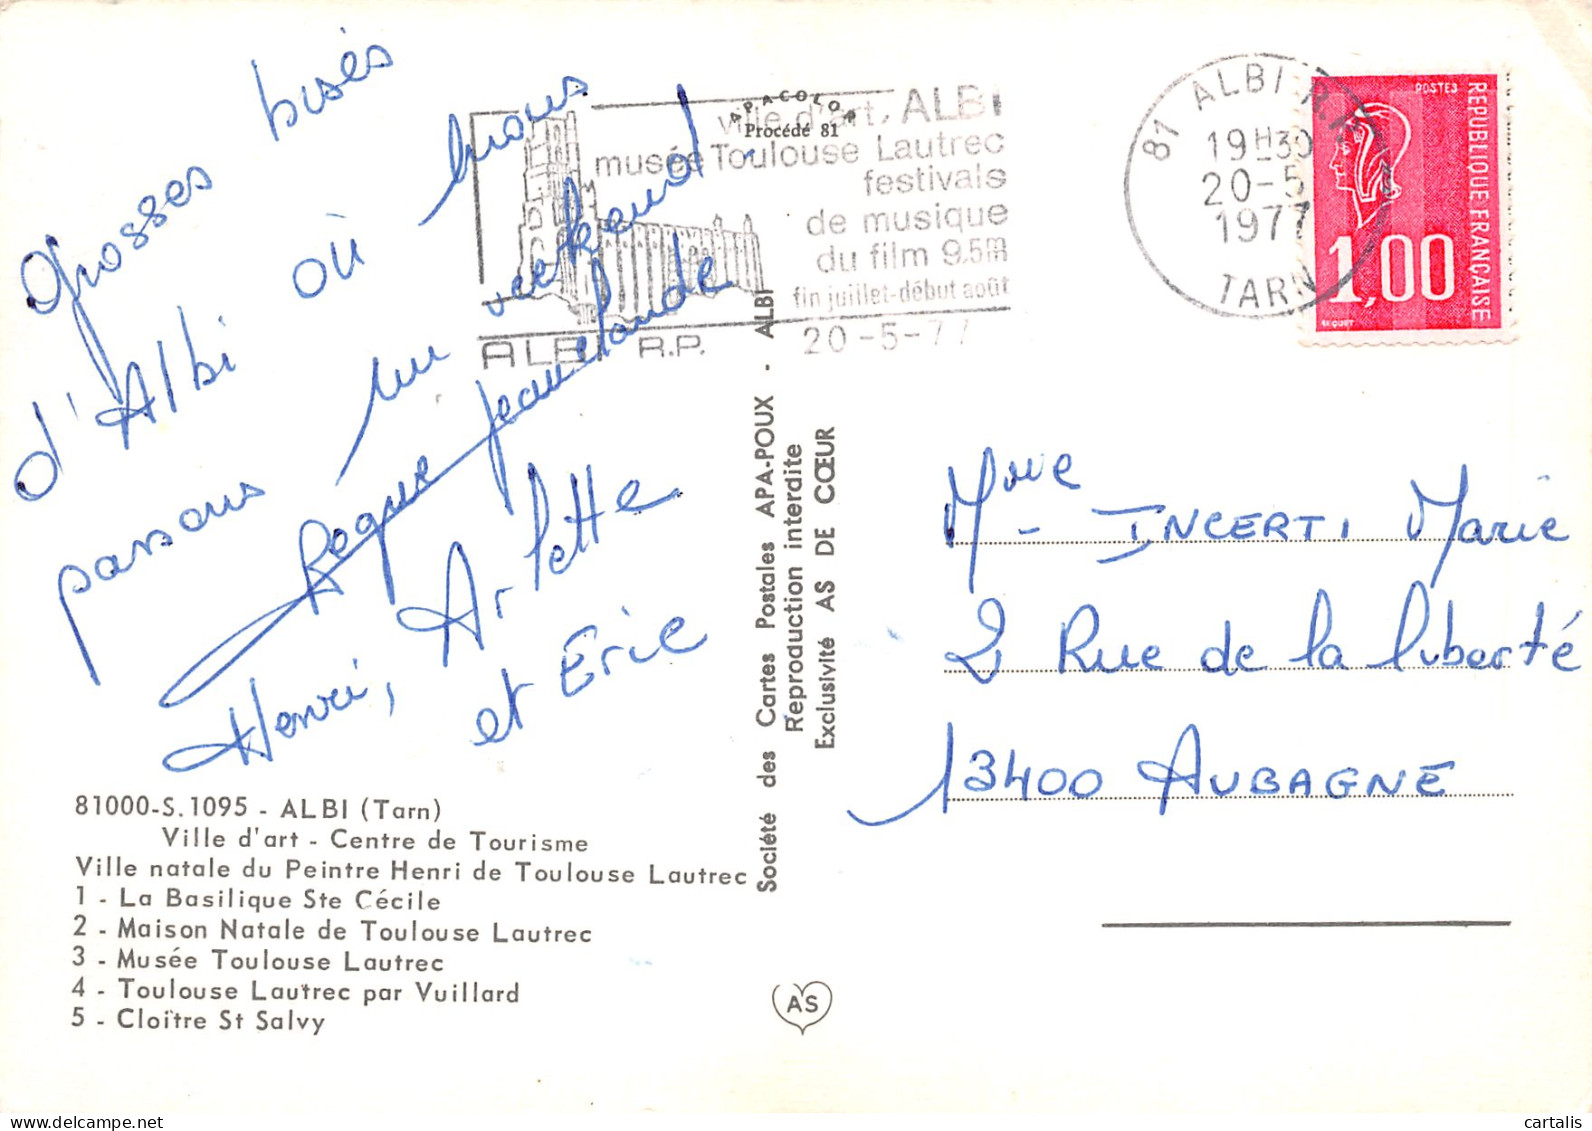 Grosses bisés
d'Albi où nous
passons un weekend.
Roque Jean claude
Henri, Arlette
et Eric
81000-S.1095 - ALBI (Tarn)
Ville d'art - Centre de Tourisme
Ville natale du Peintre Henri de Toulouse Lautrec
1 - La Basilique Ste Cécile
2 - Maison Natale de Toulouse Lautrec
3 - Musée Toulouse Lautrec
4 - Toulouse Lautrec par Vuillard
5 - Cloître St Salvy
APACOLOR
Procédé 81
ville d'art, ALBI
musée Toulouse Lautrec
festivals
de musique
du film 9,5m
fin juillet-début août
ALBI R.P.
20-5-77
Société des Cartes Postales APA-POUX - ALBI
Reproduction interdite
Exclusivité AS DE CŒUR
AS
81 ALBI R.P.
19H30
20-5
1977
TARN
POSTES
REPUBLIQUE FRANÇAISE
1,00
BEQUET
Mme INCERTI Marie
2 Rue de la liberté
13400 AUBAGNE
cartalis